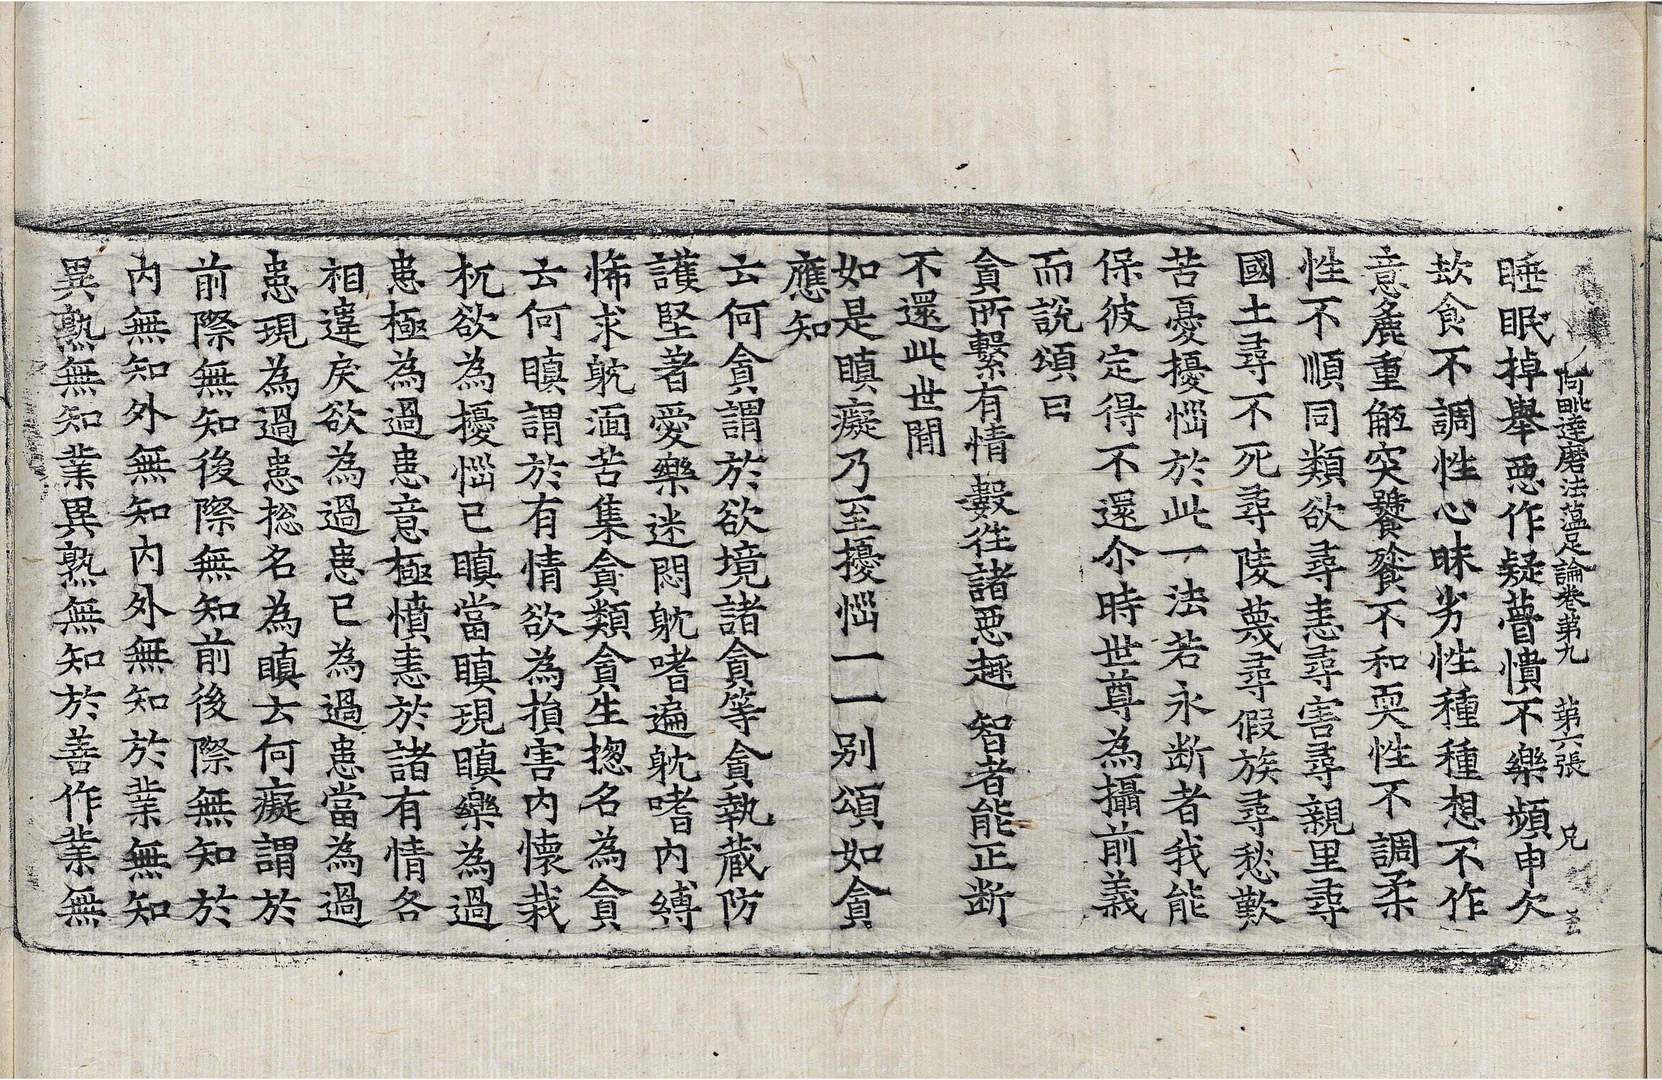 阿毗達磨法蘊足論卷第九　第六張　兄
睡眠掉舉惡作疑瞢憒不樂頻申欠
㰦食不調性心昧劣性種種想不作
意麁重觝突饕餮不和耎性不調柔
性不順同類欲尋恚尋害尋親里尋
國土尋不死尋陵蔑尋假族尋愁歎
苦憂擾惱於此一法若永断者我能
保彼定得不還尒時世尊為攝前義
而說頌曰
貪所繫有情　數往諸惡趣　智者能正断
不還此世間
如是瞋癡乃至擾惱一一別頌如貪
應知
云何貪謂於欲境諸貪等貪執藏防
護堅著愛樂迷悶躭嗜遍躭嗜内縛
悕求躭湎苦集貪類貪生揔名為貪
云何瞋謂於有情欲為損害内懷栽
杌欲為擾惱已瞋當瞋現瞋樂為過
患極為過患意極憤恚於諸有情各
相違戾欲為過患已為過患當為過
患現為過患揔名為瞋云何癡謂於
前際無知後際無知前後際無知於
内無知外無知内外無知於業無知
異熟無知業異熟無知於善作業無